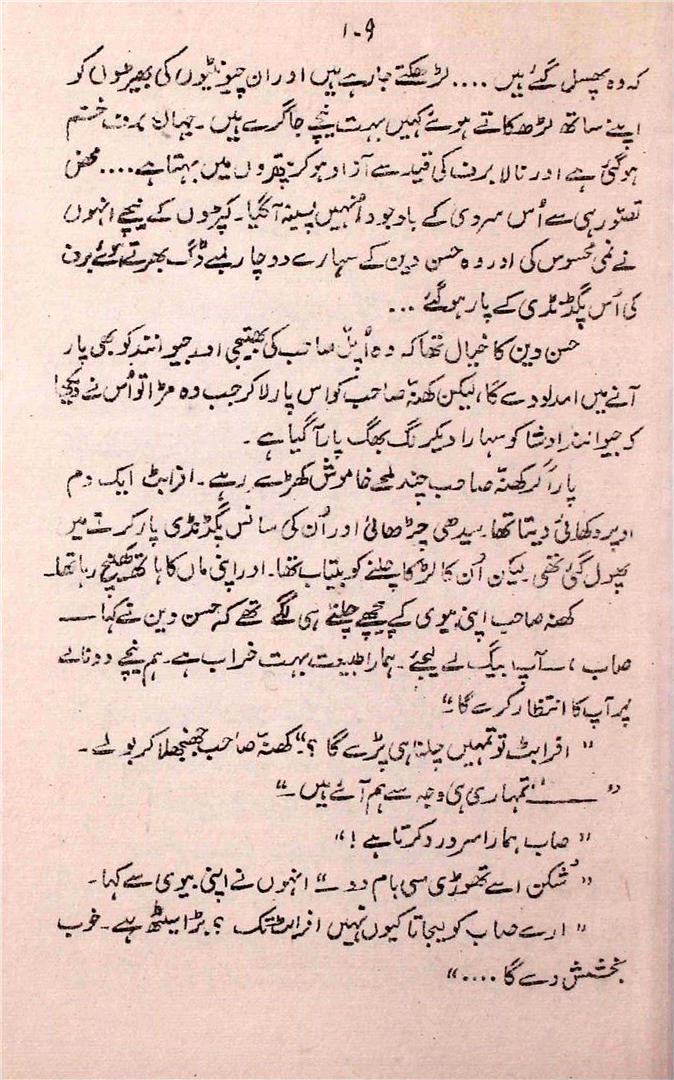 ۱۰۹
کہ وہ پھسل گئے ہیں .... لڑھکتے جا رہے ہیں اور ان چیونٹیوں کی بھیڑوں کو
اپنے ساتھ لڑھکاتے ہوئے کہیں بہت نیچے جا گرے ہیں ۔ جہاں برف ختم
ہو گئی ہے اور نالا برف کی قید سے آزاد ہو کر پتھروں میں بہتا ہے .... محض
تصوّر ہی سے اُس سردی کے باوجود اُنہیں پسینہ آگیا ۔ کپڑوں کے نیچے انہوں
نے نمی محسوس کی اور وہ حسن دین کے سہارے دو چار لمبے ڈگ بھرتے ہوئے برف
کی اُس پگڈنڈی کے پار ہو گئے ...
حسن دین کا خیال تھا کہ وہ اُپل صاحب کی بھتیجی اور جیوانند کو بھی پار
آنے میں امداد دے گا ، لیکن کھنہّ صاحب کو اس پار لا کر جب وہ مڑا تو اُس نے دیکھا
کہ جیوانند اوشا کو سہارا دیکر لگ بھگ پار آگیا ہے ۔
پار آ کر کھنہّ صاحب چند لمحے خاموش کھڑے رہے ۔ افرابٹ ایک دم
اوپر دکھائی دیتا تھا ۔ سیدھی چڑھائی اور اُن کی سانس پگڈنڈی پار کرنے میں
پھول گئی تھی ۔ لیکن اُن کا لڑکا چلنے کو بیتاب تھا ۔ اور اپنی ماں کا ہاتھ کھینچ رہا تھا ۔
کھنہ صاحب اپنی بیوی کے پیچھے چلنے ہی لگے تھے کہ حسن دین نے کہا ــــ
صاب ، ــ آپ بیگ لے لیجئے ۔ ہمارا طبیوت بہت خراب ہے ۔ ہم نیچے دو نالے
پُر آپ کا انتظار کرے گا ۔"
" افرابٹ تو تمہیں چلنا ہی پڑے گا ؟" کھنہّ صاحب جھنجھلا کر بولے ۔
" ــــــــ تمہاری ہی وجہ سے ہم آئے ہیں ۔"
" صاب ہمارا سر درد کرتا ہے !"
" شُکن اسے تھوڑی سی بام دو ۔" انہوں نے اپنی بیوی سے کہا ۔
" ارے صاب کو لیجاتا کیوں نہیں افرابٹ تک ؟ بڑا سیٹھ ہے ۔ خوب
بخشش دے گا ...."